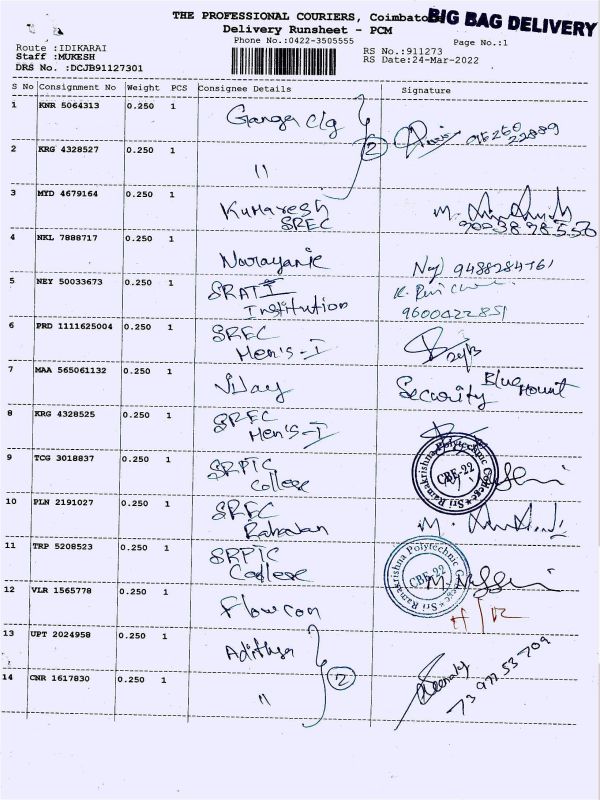 THE PROFESSIONAL COURIERS, Coimbato
BIG BAG DELIVERY
Delivery Runsheet - PCM
Phone No.:0422-3505555
Page No.:1
Route :IDIKARAI
Staff :MUKESH
DRS No. :DCJB91127301
RS No.:911273
RS Date:24-Mar-2022
S No Consignment No Weight PCS Consignee Details Signature
1 KNR 5064313 0.250 1 Ganga clg
2
2 KRG 4328527 0.250 1 "
3 MYD 4679164 0.250 1 Kumaresh
SREC
M.
4 NKL 7888717 0.250 1
5 NEY 50033673 0.250 1
Institution
9600422851
6 PRD 1111625004 0.250 1 SREC
Men's-I
24/3
7 MAA 565061132 0.250 1 Vijay
Security Blue Mount
8 KRG 4328525 0.250 1 SREC
Men's-I
9 TCG 3018837 0.250 1 SRPTC
College
Sri Ramakrishna Polytechnic College
CBE-22
10 PLN 2191027 0.250 1 SREC
M.
11 TRP 5208523 0.250 1 SRPTC
College
Sri Ramakrishna Polytechnic College
CBE-22
12 VLR 1565778 0.250 1 Flowcon
13 UPT 2024958 0.250 1 Adithya
2
14 CNR 1617830 0.250 1 "